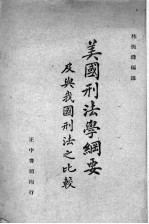 美國刑法學綱要
及與我國刑法之比較
正中書局印行